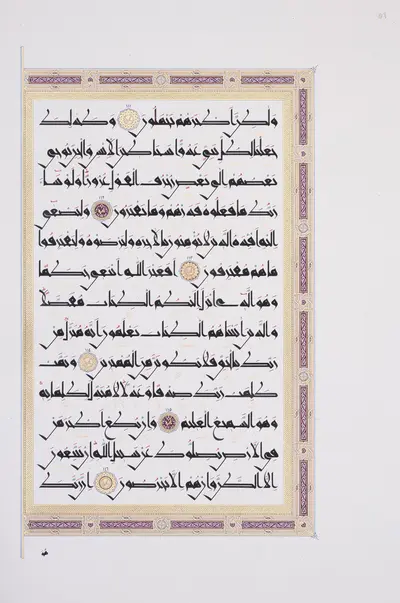 ولكن أكثرهم يجهلون وكذلك
جعلنا لكل نبي عدوا شياطين الإنس والجن يوحي
بعضهم إلى بعض زخرف القول غرورا ولو شاء
ربك ما فعلوه فذرهم وما يفترون ولتصغى
إليه أفئدة الذين لا يؤمنون بالآخرة وليرضوه وليقترفوا
ما هم مقترفون أفغير الله أبتغي حكما
وهو الذي أنزل إليكم الكتاب مفصلا
والذين آتيناهم الكتاب يعلمون أنه منزل من
ربك بالحق فلا تكونن من الممترين وتمت
كلمت ربك صدقا وعدلا لا مبدل لكلماته
وهو السميع العليم وإن تطع أكثر من
في الأرض يضلوك عن سبيل الله إن يتبعون
إلا الظن وإن هم إلا يخرصون إن ربك